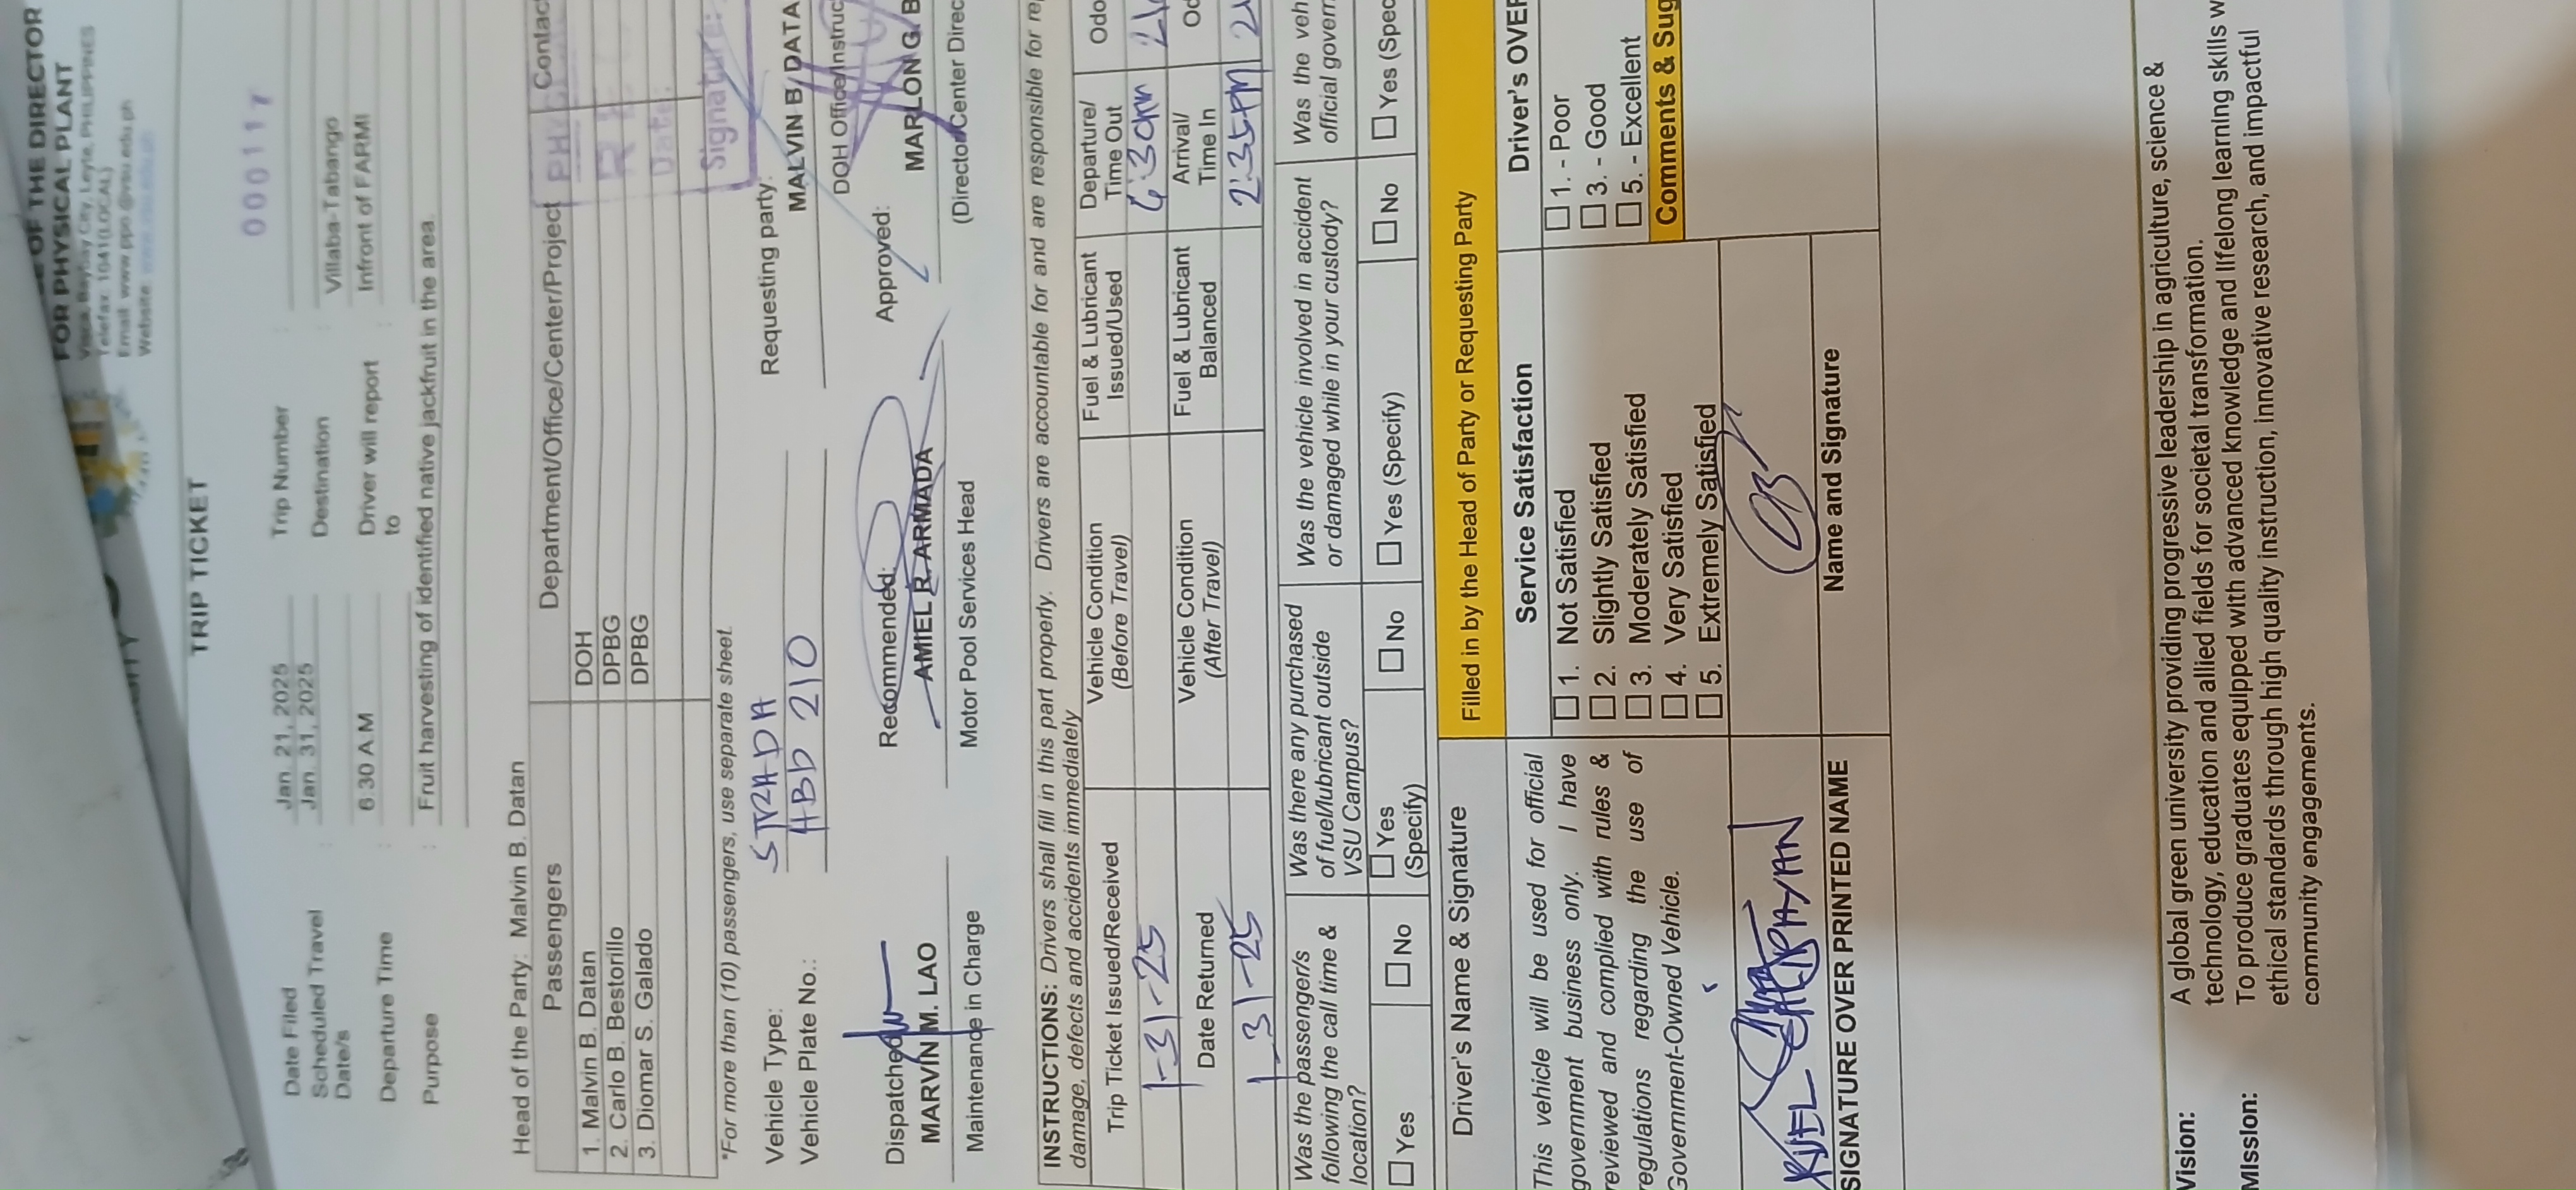 OF THE DIRECTOR
FOR PHYSICAL PLANT
Visca, Baybay City, Leyte, PHILIPPINES
Telefax: 1041(LOCAL)
Email: www.ppo@vsu.edu.ph
Website: www.vsu.edu.ph
000117
TRIP TICKET
Date Filed Jan. 21, 2025 Trip Number :
Scheduled Travel Date/s Jan. 31, 2025 Destination : Villaba-Tabango
Departure Time : 6:30 AM Driver will report to : Infront of FARMI
Purpose : Fruit harvesting of identified native jackfruit in the area.
Head of the Party: Malvin B. Datan
Passengers Department/Office/Center/Project Contac
1. Malvin B. Datan DOH
2. Carlo B. Bestorillo DPBG
3. Diomar S. Galado DPBG
Date:
Signature:
*For more than (10) passengers, use separate sheet.
Vehicle Type: STRADA Requesting party:
Vehicle Plate No.: HBD 210 MALVIN B. DATA
DOH Office/Instruc
Dispatched Recommended: Approved:
MARVIN M. LAO AMIEL R. ARMADA MARLON G. B
Maintenance in Charge Motor Pool Services Head (Director/Center Direc
INSTRUCTIONS: Drivers shall fill in this part properly. Drivers are accountable for and are responsible for re
damage, defects and accidents immediately
Trip Ticket Issued/Received Vehicle Condition (Before Travel) Fuel & Lubricant Issued/Used Departure/ Time Out Odo
1-31-25
Date Returned Vehicle Condition (After Travel) Fuel & Lubricant Balanced Arrival/ Time In Od
1-31-25 2:35PM
Was the passenger/s following the call time & location?
Was there any purchased of fuel/lubricant outside VSU Campus?
Was the vehicle involved in accident or damaged while in your custody?
Was the veh
official govern
☐ Yes ☐ No ☐ Yes (Specify) ☐ No ☐ Yes (Specify) ☐ No ☐ Yes (Spec
Filled in by the Head of Party or Requesting Party
Driver's Name & Signature Service Satisfaction Driver's OVER
This vehicle will be used for official
government business only. I have
reviewed and complied with rules &
regulations regarding the use of
Government-Owned Vehicle.
☐ 1. Not Satisfied
☐ 2. Slightly Satisfied
☐ 3. Moderately Satisfied
☐ 4. Very Satisfied
☐ 5. Extremely Satisfied
☐ 1. - Poor
☐ 3. - Good
☐ 5. - Excellent
Comments & Sug
SIGNATURE OVER PRINTED NAME Name and Signature
Vision: A global green university providing progressive leadership in agriculture, science &
technology, education and allied fields for societal transformation.
Mission: To produce graduates equipped with advanced knowledge and lifelong learning skills w
ethical standards through high quality instruction, innovative research, and impactful
community engagements.